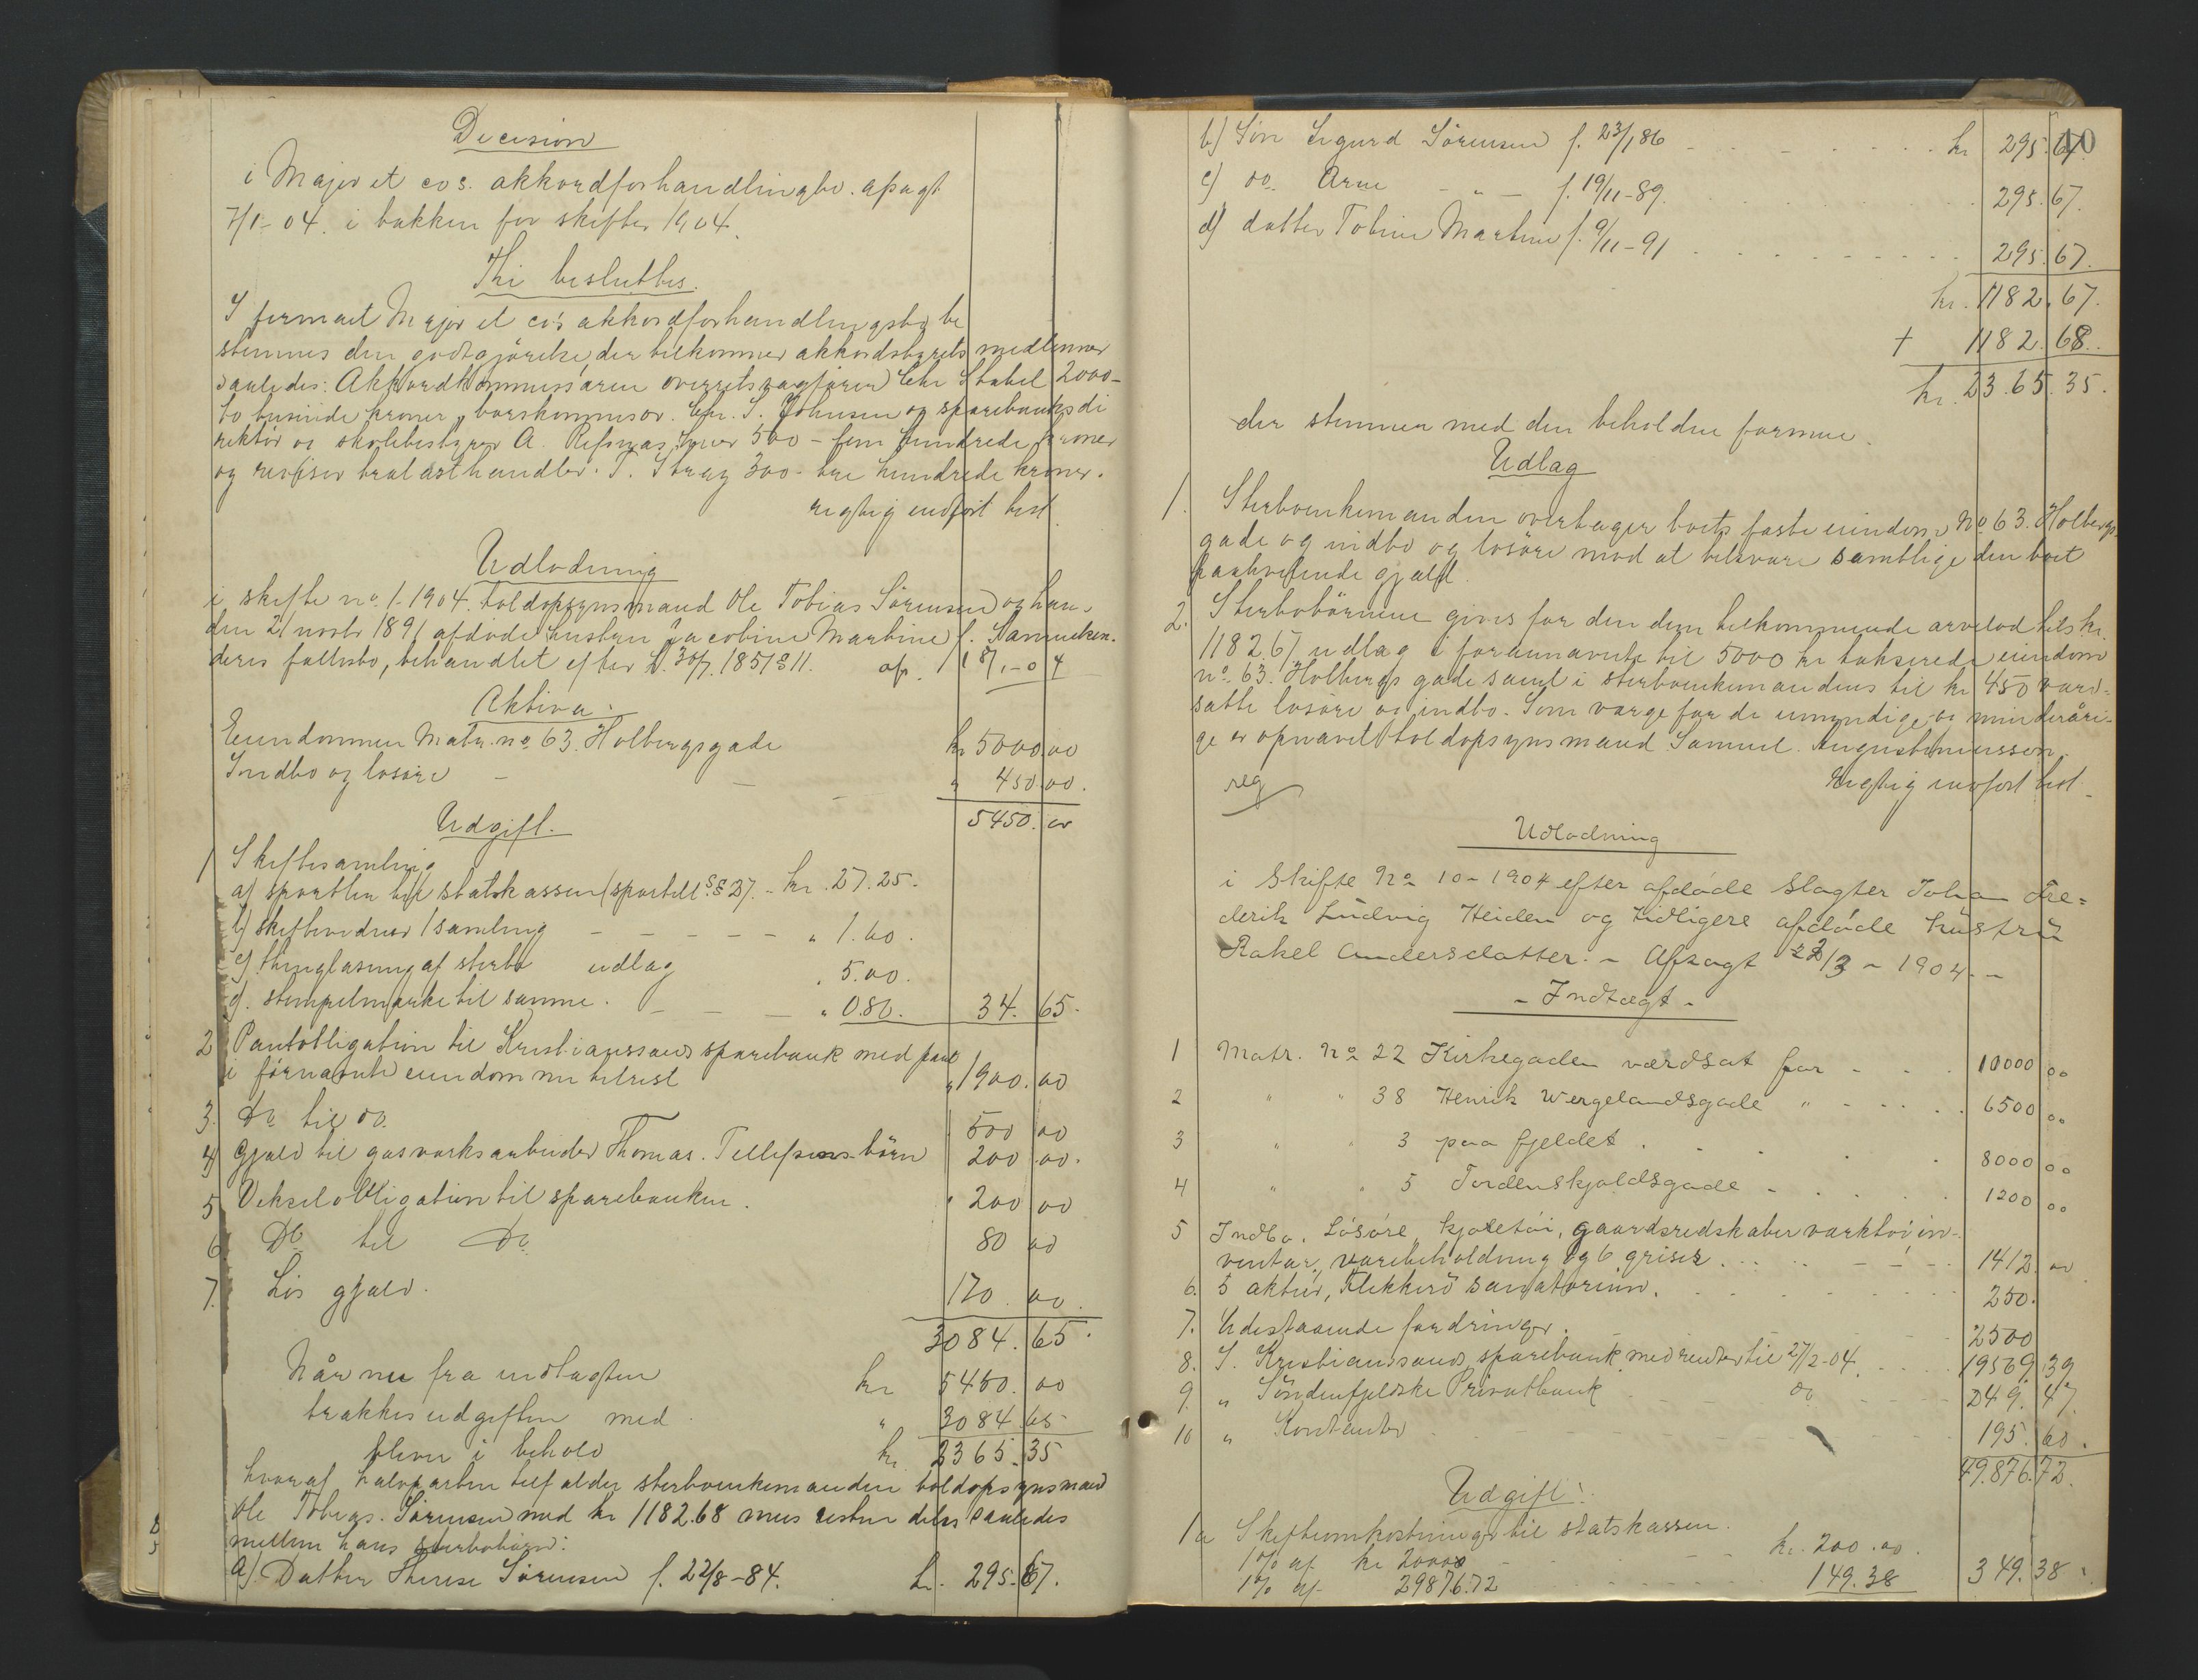 Decision
i Majer et co's. akkordforhandlingsbo. afsagt
7/1-04. i bakken for skifter 1904.
Thi besluttes.
I firmaet Majer et co's akkordforhandlingsbo be
stemmes den godtgjörelse der tilkommer akkordstyrets medlemmer
saaledes: Akkordkommissæren overretssagfører Chr Stabel 2000-
to tusinde kroner, Chr. S. Johnsen og sparebanksdi
rektör og skolebestyrer A. Refsnæs hver 500 - fem hundrede kroner
og revisor trælasthandler T. Stray 300- tre hundrede kroner.
rigtig indfört test
Udlodning
i skifte no. 1-1904. toldopsynsmand Ole Tobias Sörensen og han-
den 21 novbr 1891 afdöde hustru Jacobine Martine f. Samuelsen.
deres fællesbo, behandlet efter L. 30/7. 1851 § 11. afs. 18/1-04
Aktiva.
Eiendommen Matr. no. 63. Holbergsgade kr 5000.00
Indbo og lösöre - - - " 450.00.
5450.00
Udgift.
1 Skiftesamling
a) sportler til statskassen (sportell. §§ 27. - kr. 27.25.
b) skiftevidner 1 samling - - - - - " 1.60.
c) thinglæsning af sterbo udlag " 5.00.
d). stempelmærke til samme. - - - " 0.80. 34.65.
2 Pantobligation til Kristianssands sparebank med pant
i förnævnte eiendom nu tilrest " 1900.00
3. Do til do. 500 00
4 Gjæld til gasværksarbeider Thomas. Tellefsens börn 200.00.
5 Vekselobligation til sparebanken. " 200 00
6. Do til Do 80 00
7. Lös gjæld. 170.00.
3084.65.
Når nu fra indtægten kr 5450.00
trækkes udgiften med " 3084.65
bliver i behold kr. 2365.35
hvoraf halvparten tilfalder sterboenkemanden toldopsynsmand
Ole Tobias. Sörensen med kr 1182.68 mens resten deles saaledes
mellem hans sterbobörn:
a). Datter Therese Sörensen f. 22/8-84. kr. 295.67.
40
b) Sön Sigurd Sörensen f. 23/1 86 - - - kr 295.67.
c) do. Arne - " - f. 19/11-89. 295.67.
d) datter Tobine Martine f. 9/11-91 295.67.
kr. 1182.67.
+ 1182.68.
kr. 23.65.35.
der stemmer med den beholdne formue.
Udlag
1. Sterboenkemanden overtager boets faste eiendom No 63. Holbergs
gade og indbo og lösöre mod at tilsvare samtlige den boet
paahvilende gjæld.
2. Sterbobörnene gives for den dem tilkommende arvelod tils kr.
1182.67 udlag i forannævnte til 5000 kr takserede eiendom
no. 63. Holbergs gade samt i sterboenkemandens til kr 450 værd-
satte lösöre og indbo. Som værge for de umyndige og mindreåri-
ge er opnævnt toldopsynsmand Samuel Augustinussen.
reg Rigtig indfört test
Udlodning
i Skifte No 10-1904 efter afdøde Slagter Johan Fre=
derik Ludvig Heiden og tidligere afdøde hustru
Rakel Andersdatter. - Afsagt 22/3 - 1904. -
- Indtægt -
1 Matr. No 22 Kirkegaden værdsat for - - . 10000 00
2 " " 38 Henrik Wergelandsgade " - - - - . 6500 00
3 " " 3 paa fjeldet . . . . 8000 00
4 " " 5 Tordenskjoldsgade - . . . . 1200 00
5 Indbo, Lösöre, kjöretöi, gaardsredskaber værktöi in-
ventar, varebeholdning og 6 griser. 1412.00
6. 5 aktier, Flekkerö sanatorium. 250.
7. Udestaaende fordringer. 2500
8. I. Kristianssands sparebank med renter til 27/2-04 19569.39
9. " Söndenfjeldske Privatbank do 249.47.
10 " Kontanter 195.60.
49.876.72.
Udgift.
1a Skifteomkostninger til statskassen.
1% af kr 20000 - - - - kr. 200.00.
1% af 29876.72 149.38 349.38.